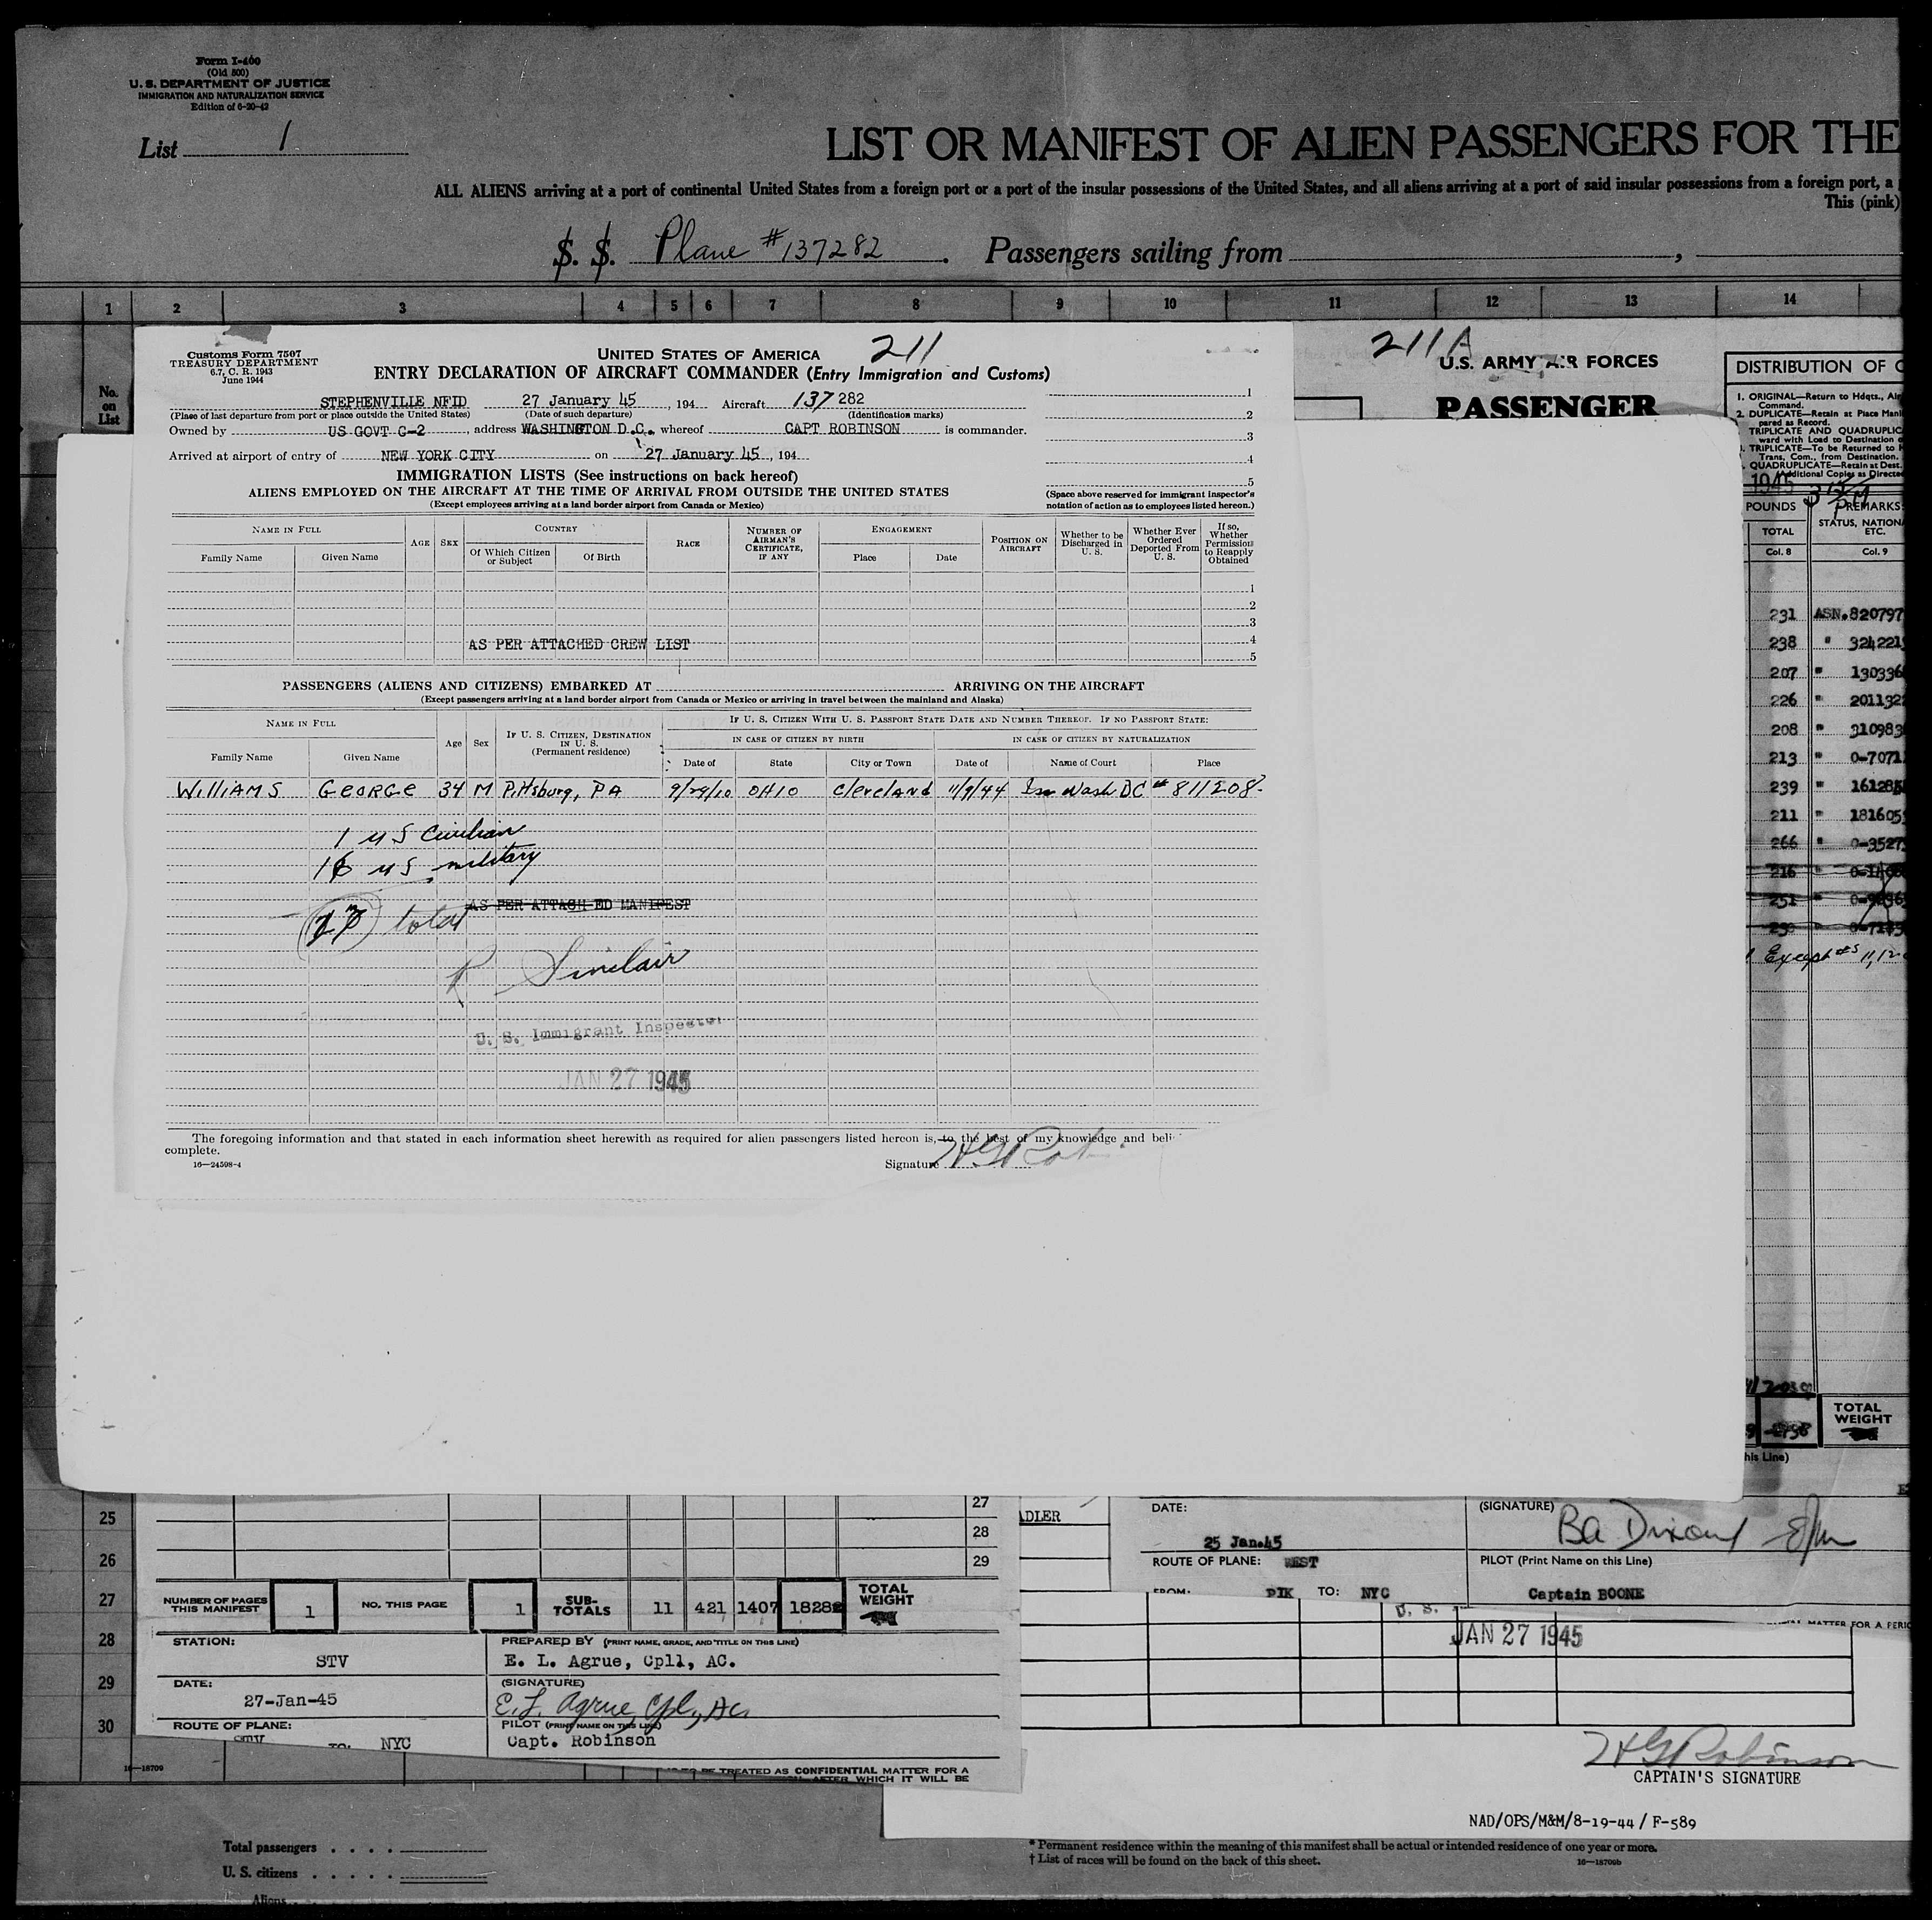 Form I-400
(Old 500)
U. S. DEPARTMENT OF JUSTICE
IMMIGRATION AND NATURALIZATION SERVICE
Edition of 6-20-42
List 1
LIST OR MANIFEST OF ALIEN PASSENGERS FOR THE
ALL ALIENS arriving at a port of continental United States from a foreign port or a port of the insular possessions of the United States, and all aliens arriving at a port of said insular possessions from a foreign port, a
This (pink)
S. S. Plane #137282. Passengers sailing from ,
1 2 3 4 5 6 7 8 9 10 11 12 13 14
No. on List
Customs Form 7507
TREASURY DEPARTMENT
6.7, C. R. 1943
June 1944
UNITED STATES OF AMERICA 211
ENTRY DECLARATION OF AIRCRAFT COMMANDER (Entry Immigration and Customs)
STEPHENVILLE NFID 27 January 45, 194 Aircraft 137 282
(Place of last departure from port or place outside the United States) (Date of such departure) (Identification marks)
Owned by US GOVT C-2, address WASHINGTON D.C., whereof CAPT ROBINSON is commander.
Arrived at airport of entry of NEW YORK CITY on 27 January 45, 194
1
2
3
4
5
IMMIGRATION LISTS (See instructions on back hereof)
ALIENS EMPLOYED ON THE AIRCRAFT AT THE TIME OF ARRIVAL FROM OUTSIDE THE UNITED STATES
(Except employees arriving at a land border airport from Canada or Mexico)
(Space above reserved for immigrant inspector's
notation of action as to employees listed hereon.)
NAME IN FULL AGE SEX COUNTRY RACE NUMBER OF AIRMAN'S CERTIFICATE, IF ANY ENGAGEMENT POSITION ON AIRCRAFT Whether to be Discharged in U. S. Whether Ever Ordered Deported From U. S. If so, Whether Permission to Reapply Obtained
Family Name Given Name Of Which Citizen or Subject Of Birth Place Date
1
2
3
AS PER ATTACHED CREW LIST 4
5
PASSENGERS (ALIENS AND CITIZENS) EMBARKED AT ARRIVING ON THE AIRCRAFT
(Except passengers arriving at a land border airport from Canada or Mexico or arriving in travel between the mainland and Alaska)
NAME IN FULL Age Sex IF U. S. CITIZEN, DESTINATION IN U. S. (Permanent residence) IF U. S. CITIZEN WITH U. S. PASSPORT STATE DATE AND NUMBER THEREOF. IF NO PASSPORT STATE:
IN CASE OF CITIZEN BY BIRTH IN CASE OF CITIZEN BY NATURALIZATION
Family Name Given Name Date of State City or Town Date of Name of Court Place
WilliAMS GeORGe 34 M Pittsburg, PA 9/29/10 OHIO ClevelAnd 11/9/44 Wash DC #811208
1 US Civilian
16 US military
17 total
AS PER ATTACH ED MANIFEST
R Sinclair
U. S. Immigrant Inspector
JAN 27 1945
The foregoing information and that stated in each information sheet herewith as required for alien passengers listed hereon is, to the best of my knowledge and beli
complete.
16—24598-4
Signature HG Rob
211A
U.S. ARMY AIR FORCES
PASSENGER
DISTRIBUTION OF C
1. ORIGINAL—Return to Hdqts., Air
Command.
2. DUPLICATE—Retain at Place Mani
pared as Record.
TRIPLICATE AND QUADRUPLIC
ward with Load to Destination o
TRIPLICATE—To be Returned to H
Trans. Com., from Destination.
QUADRUPLICATE—Retain at Dest.
(Additional Copies as Directed
1945
POUNDS REMARKS
TOTAL STATUS, NATION
ETC.
Col. 8 Col. 9
231 ASN.820797
238 " 324221
207 " 130336
226 " 201132
208 " 310983
213 " 0-7071
239 " 16128
211 " 181605
266 " 0-3527
216
251
Except #s 11,12
TOTAL
WEIGHT
his Line)
27
25
28
26
29
NUMBER OF PAGES THIS MANIFEST 1 NO. THIS PAGE 1 SUB-TOTALS 11 421 1407 1828 TOTAL WEIGHT
27
28
STATION: STV
PREPARED BY (PRINT NAME, GRADE, AND TITLE ON THIS LINE)
E. L. Agrue, Cpll, AC.
29
DATE: 27-Jan-45
(SIGNATURE)
E. L. Agrue, Cpl., AC.
30
ROUTE OF PLANE:
STV TO: NYC
PILOT (PRINT NAME ON THIS LINE)
Capt. Robinson
16—18709
TO BE TREATED AS CONFIDENTIAL MATTER FOR A
WHICH IT WILL BE
ADLER
DATE:
25 Jan.45
(SIGNATURE)
ROUTE OF PLANE: WEST
PILOT (Print Name on this Line)
FROM: PIK TO: NYC
Captain BOONE
MATTER FOR A PERIO
U. S.
JAN 27 1945
HG Robinson
CAPTAIN'S SIGNATURE
NAD/OPS/M&M/8-19-44 / F-589
Total passengers
U. S. citizens
Aliens
* Permanent residence within the meaning of this manifest shall be actual or intended residence of one year or more.
† List of races will be found on the back of this sheet.
16—18709b